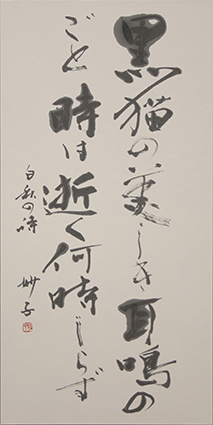 黒猫の美しき耳鳴の
ごと時は逝く何時しらず
白秋の詩
妙子